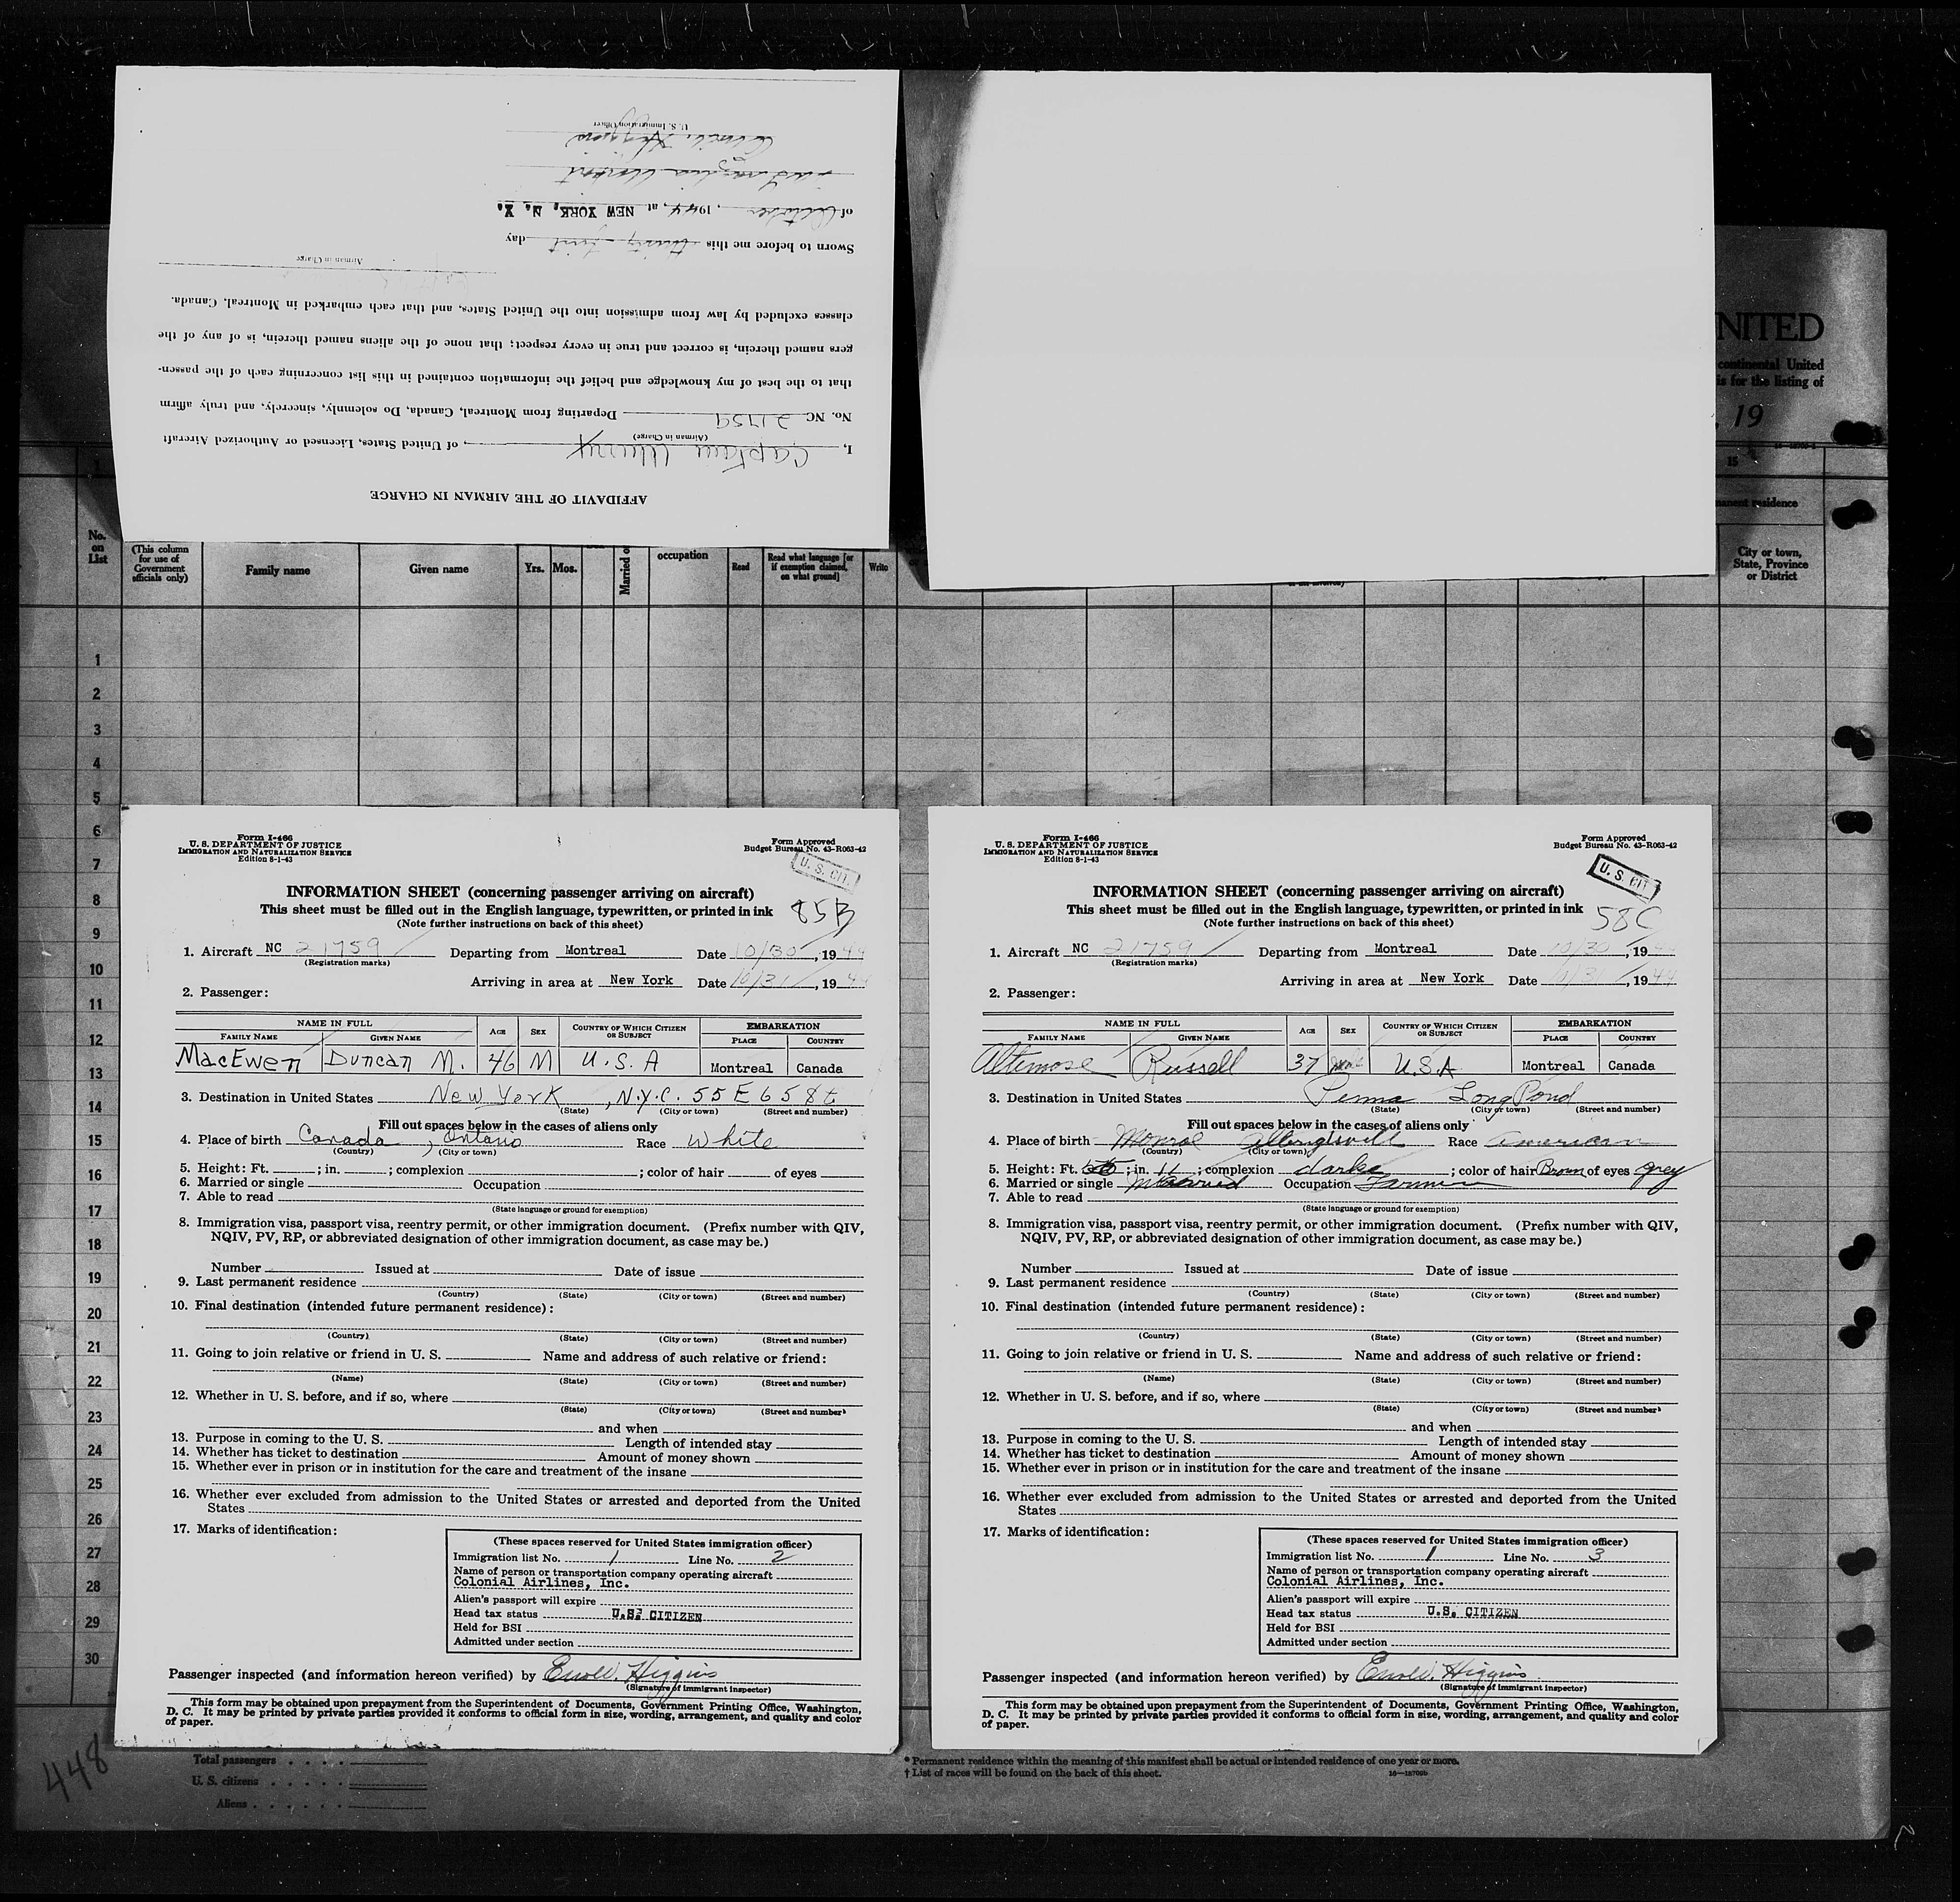 AFFIDAVIT OF THE AIRMAN IN CHARGE
I, Captain , of United States, Licensed or Authorized Aircraft
(Airman in Charge)
No. NC 21759 Departing from Montreal, Canada, Do solemnly, sincerely, and truly affirm
that to the best of my knowledge and belief the information contained in this list concerning each of the passen-
gers named therein, is correct and true in every respect; that none of the aliens named therein, is of any of the
classes excluded by law from admission into the United States, and that each embarked in Montreal, Canada.
Airman in Charge
Sworn to before me this thirty-first day
of October, 1944, at NEW YORK, N. Y.
U. S. Immigration Officer
NITED
continental United
is for the listing of
, 19
15
manent residence
No. on List
(This column for use of Government officials only)
Family name
Given name
Yrs. Mos.
Married o
occupation
Read
Read what language [or if exemption claimed, on what ground]
Write
City or town, State, Province or District
1
2
3
4
5
6
7
8
9
10
11
12
13
14
15
16
17
18
19
20
21
22
23
24
25
26
27
28
29
30
Form I-466
U. S. DEPARTMENT OF JUSTICE
IMMIGRATION AND NATURALIZATION SERVICE
Edition 8-1-43
Form Approved
Budget Bureau No. 43-R063-42
U. S. CIT.
INFORMATION SHEET (concerning passenger arriving on aircraft)
This sheet must be filled out in the English language, typewritten, or printed in ink 85B
(Note further instructions on back of this sheet)
1. Aircraft NC 21759 Departing from Montreal Date 10/30, 1944
(Registration marks)
Arriving in area at New York Date 10/31, 1944
2. Passenger:
NAME IN FULL AGE SEX COUNTRY OF WHICH CITIZEN OR SUBJECT EMBARKATION
FAMILY NAME GIVEN NAME PLACE COUNTRY
MacEwen Duncan M. 46 M U.S.A Montreal Canada
3. Destination in United States New York, N.Y.C. 55 E 65 St
(State) (City or town) (Street and number)
Fill out spaces below in the cases of aliens only
4. Place of birth Canada, Ontario Race White
(Country) (City or town)
5. Height: Ft. ; in. ; complexion ; color of hair of eyes
6. Married or single Occupation
7. Able to read
(State language or ground for exemption)
8. Immigration visa, passport visa, reentry permit, or other immigration document. (Prefix number with QIV,
NQIV, PV, RP, or abbreviated designation of other immigration document, as case may be.)
Number Issued at Date of issue
9. Last permanent residence
(Country) (State) (City or town) (Street and number)
10. Final destination (intended future permanent residence):
(Country) (State) (City or town) (Street and number)
11. Going to join relative or friend in U. S. Name and address of such relative or friend:
(Name) (State) (City or town) (Street and number)
12. Whether in U. S. before, and if so, where
(State) (City or town) (Street and number)
and when
13. Purpose in coming to the U. S. Length of intended stay
14. Whether has ticket to destination Amount of money shown
15. Whether ever in prison or in institution for the care and treatment of the insane
16. Whether ever excluded from admission to the United States or arrested and deported from the United
States
17. Marks of identification:
(These spaces reserved for United States immigration officer)
Immigration list No. 1 Line No. 2
Name of person or transportation company operating aircraft
Colonial Airlines, Inc.
Alien's passport will expire
Head tax status U.S. CITIZEN
Held for BSI
Admitted under section
Passenger inspected (and information hereon verified) by Higgins
(Signature of immigrant inspector)
This form may be obtained upon prepayment from the Superintendent of Documents, Government Printing Office, Washington,
D. C. It may be printed by private parties provided it conforms to official form in size, wording, arrangement, and quality and color
of paper.
Form I-466
U. S. DEPARTMENT OF JUSTICE
IMMIGRATION AND NATURALIZATION SERVICE
Edition 8-1-43
Form Approved
Budget Bureau No. 43-R063-42
U. S. CIT.
INFORMATION SHEET (concerning passenger arriving on aircraft)
This sheet must be filled out in the English language, typewritten, or printed in ink 58C
(Note further instructions on back of this sheet)
1. Aircraft NC 21759 Departing from Montreal Date 10/30, 1944
(Registration marks)
Arriving in area at New York Date 10/31, 1944
2. Passenger:
NAME IN FULL AGE SEX COUNTRY OF WHICH CITIZEN OR SUBJECT EMBARKATION
FAMILY NAME GIVEN NAME PLACE COUNTRY
Altemose Russell 37 Male U.S.A Montreal Canada
3. Destination in United States Penna Long Pond
(State) (City or town) (Street and number)
Fill out spaces below in the cases of aliens only
4. Place of birth Monroe Race American
(Country) (City or town)
5. Height: Ft. ; in. 11 ; complexion darke ; color of hair Brown of eyes grey
6. Married or single Married Occupation Farmer
7. Able to read
(State language or ground for exemption)
8. Immigration visa, passport visa, reentry permit, or other immigration document. (Prefix number with QIV,
NQIV, PV, RP, or abbreviated designation of other immigration document, as case may be.)
Number Issued at Date of issue
9. Last permanent residence
(Country) (State) (City or town) (Street and number)
10. Final destination (intended future permanent residence):
(Country) (State) (City or town) (Street and number)
11. Going to join relative or friend in U. S. Name and address of such relative or friend:
(Name) (State) (City or town) (Street and number)
12. Whether in U. S. before, and if so, where
(State) (City or town) (Street and number)
and when
13. Purpose in coming to the U. S. Length of intended stay
14. Whether has ticket to destination Amount of money shown
15. Whether ever in prison or in institution for the care and treatment of the insane
16. Whether ever excluded from admission to the United States or arrested and deported from the United
States
17. Marks of identification:
(These spaces reserved for United States immigration officer)
Immigration list No. 1 Line No. 3
Name of person or transportation company operating aircraft
Colonial Airlines, Inc.
Alien's passport will expire
Head tax status U.S. CITIZEN
Held for BSI
Admitted under section
Passenger inspected (and information hereon verified) by Higgins
(Signature of immigrant inspector)
This form may be obtained upon prepayment from the Superintendent of Documents, Government Printing Office, Washington,
D. C. It may be printed by private parties provided it conforms to official form in size, wording, arrangement, and quality and color
of paper.
448
Total passengers
U. S. citizens
Aliens
* Permanent residence within the meaning of this manifest shall be actual or intended residence of one year or more.
† List of races will be found on the back of this sheet.